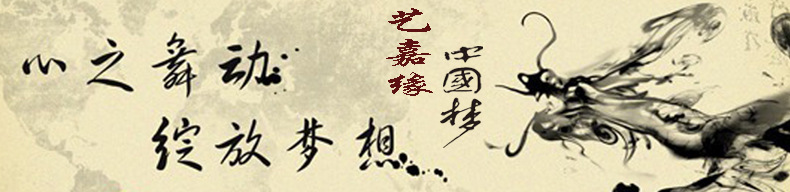 心之舞动
绽放梦想
艺嘉缘
中國梦